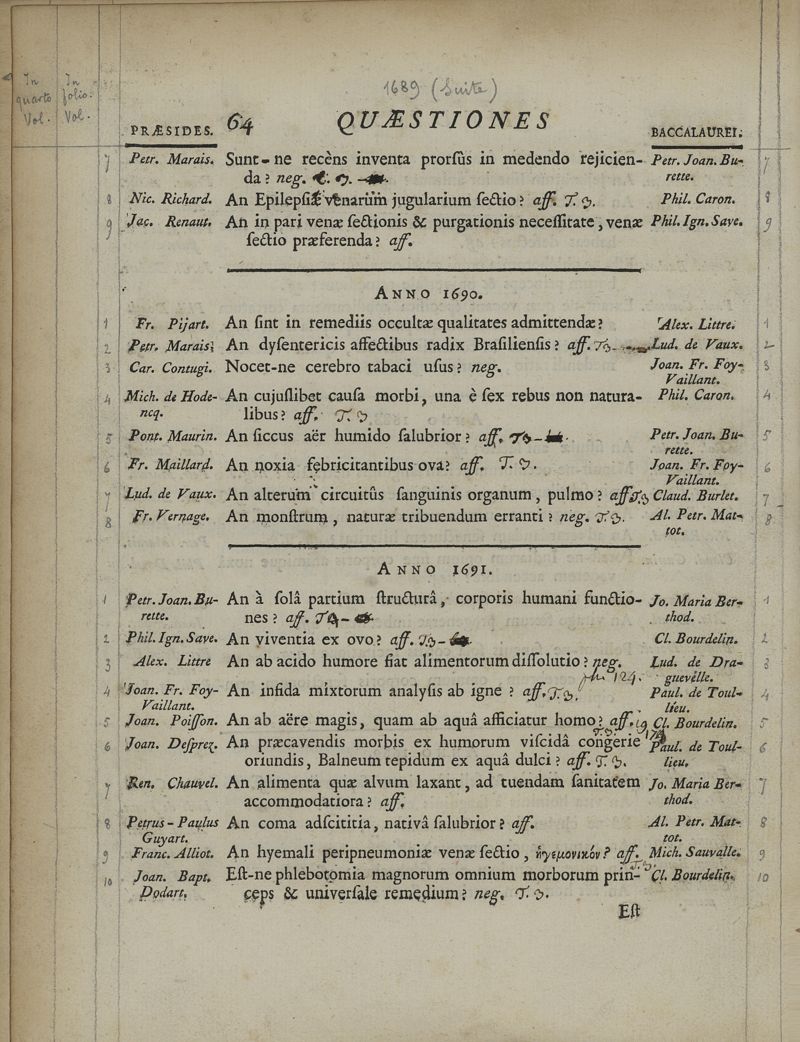 1689 (Suite)
In quarto Vol. In folio. Vol.
PRÆSIDES. 64 QUÆSTIONES BACCALAUREI.
7 Petr. Marais. Sunt-ne recèns inventa prorſùs in medendo rejicien- Petr. Joan. Bu- 7
da? neg. rette.
8 Nic. Richard. An Epilepſiæ venarum jugularium ſectio? aff. Phil. Caron. 8
9 Jac. Renaut. An in pari venæ ſectionis & purgationis neceſſitate, venæ Phil. Ign. Save. 9
ſectio præferenda? aff.
ANNO 1690.
1 Fr. Pijart. An ſint in remediis occultæ qualitates admittendæ? Alex. Littre. 1
2 Petr. Marais. An dyſentericis affectibus radix Braſilienſis? aff. Lud. de Vaux. 2
3 Car. Contugi. Nocet-ne cerebro tabaci uſus? neg. Joan. Fr. Foy- 3
Vaillant.
4 Mich. de Hode- An cujuſlibet cauſa morbi, una è ſex rebus non natura- Phil. Caron. 4
ncq. libus? aff.
5 Pont. Maurin. An ſiccus aër humido ſalubrior? aff. Petr. Joan. Bu- 5
rette.
6 Fr. Maillard. An noxia febricitantibus ova? aff. Joan. Fr. Foy- 6
Vaillant.
7 Lud. de Vaux. An alterum circuitûs ſanguinis organum, pulmo? aff. Claud. Burlet. 7
8 Fr. Vernage. An monſtrum, naturæ tribuendum erranti? neg. Al. Petr. Mat- 8
tot.
ANNO 1691.
1 Petr. Joan. Bu- An à ſolâ partium ſtructurâ, corporis humani functio- Jo. Maria Ber- 1
rette. nes? aff. thod.
2 Phil. Ign. Save. An viventia ex ovo? aff. Cl. Bourdelin. 2
3 Alex. Littre An ab acido humore fiat alimentorum diſſolutio? neg. Lud. de Dra- 3
124. guevelle.
4 Joan. Fr. Foy- An infida mixtorum analyſis ab igne? aff. Paul. de Toul- 4
Vaillant. lieu.
5 Joan. Poiſſon. An ab aëre magis, quam ab aquâ afficiatur homo? aff. Cl. Bourdelin. 5
6 Joan. Deſprez. An præcavendis morbis ex humorum viſcidâ congerie Paul. de Toul- 6
oriundis, Balneum tepidum ex aquâ dulci? aff. lieu.
7 Ren. Chauvel. An alimenta quæ alvum laxant, ad tuendam ſanitatem Jo. Maria Ber- 7
accommodatiora? aff. thod.
8 Petrus-Paulus An coma adſcititia, nativâ ſalubrior? aff. Al. Petr. Mat- 8
Guyart. tot.
9 Franc. Alliot. An hyemali peripneumoniæ venæ ſectio, ἡγεμονικόν? aff. Mich. Sauvalle. 9
10 Joan. Bapt. Eſt-ne phlebotomia magnorum omnium morborum prin- Cl. Bourdelin. 10
Dodart. ceps & univerſale remedium? neg.
Eſt